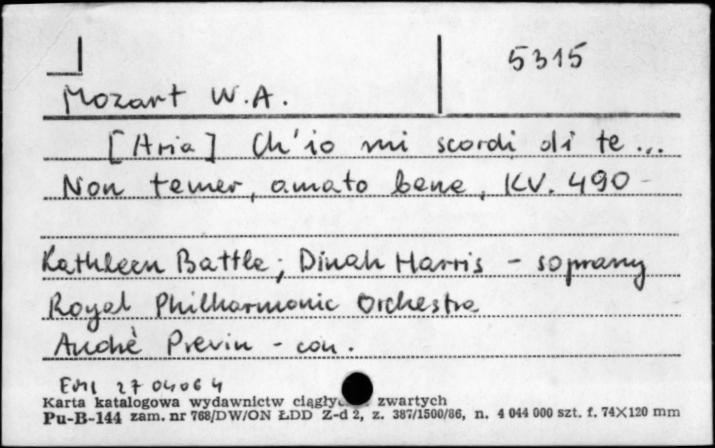 5315
Mozart W.A.
[Aria] Ch'io mi scordi di te...
Non temer, amato bene, KV. 490 -
Kathleen Battle; Dinah Harris - soprany
Royal Philharmonic Orchestra
Andrè Previn - con.
EMI 27 0406 4
Karta katalogowa wydawnictw zwartych
Pu-B-144 zam. nr 768/DW/ON ŁDD Z-d 2, z. 387/1500/86, n. 4 044 000 szt. f. 74×120 mm